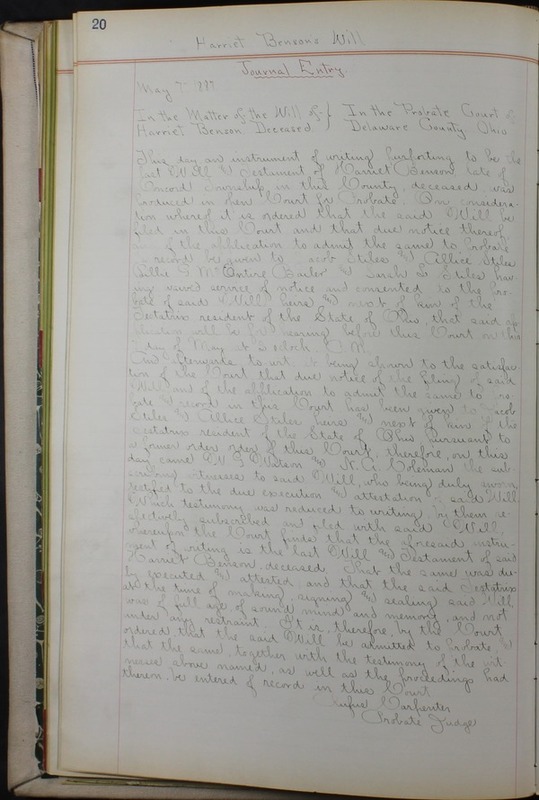 20
Harriet Bensons Will
Journal Entry
May 7
In the Matter of the Will of } In the Probate Court of
Harriet Benson Deceased } Delaware County Ohio
This day an instrument of writing purporting to be the
last Will & Testament of Harriet Benson late of
Concord Township in this County, deceased, was
produced in open Court for Probate. On considera-
tion whereof it is ordered that the said Will be
filed in this Court and that due notice thereof
of the application to admit the same to Probate
record be given to Jacob Stiles & Allice Stiles
Sarah Stiles hav
ing waived service of notice and consented to the Pro-
bate of said Will heirs & next of kin of the
Testatrix resident of the State of Ohio that said ap
plication will be for hearing before this Court on this
day of May at 2 oclock P.M.
And afterwards to wit it being shown to the satisfac-
tion of the Court that due notice of the filing of said
Will and of the application to admit the same to Pro-
bate & record in this Court has been given to Jacob
Stiles & Allice Stiles heirs & next of kin of the
testatrix resident of the State of Ohio Pursuant to
a former order order of this Court, therefore, on this
day came Watson & Coleman the sub-
scribing witnesses to said Will, who being duly sworn
testified to the due execution & attestation of said Will
Which testimony was reduced to writing, by them re-
spectively subscribed and filed with said Will,
whereupon the Court finds that the aforesaid instru-
ment of writing is the last Will & Testament of said
Harriet Benson, deceased. That the same was du-
ly executed & attested, and that the said Testatrix
at the time of making, signing & sealing said Will,
was of full age, of sound mind and memory, and not
under any restraint. It is, therefore, by the Court
ordered that the said Will be admitted to Probate, &
that the same, together with the testimony of the wit
nesses above named, as well as the proceedings had
thereon, be entered of record in this Court
Rufus Carpenter
Probate Judge